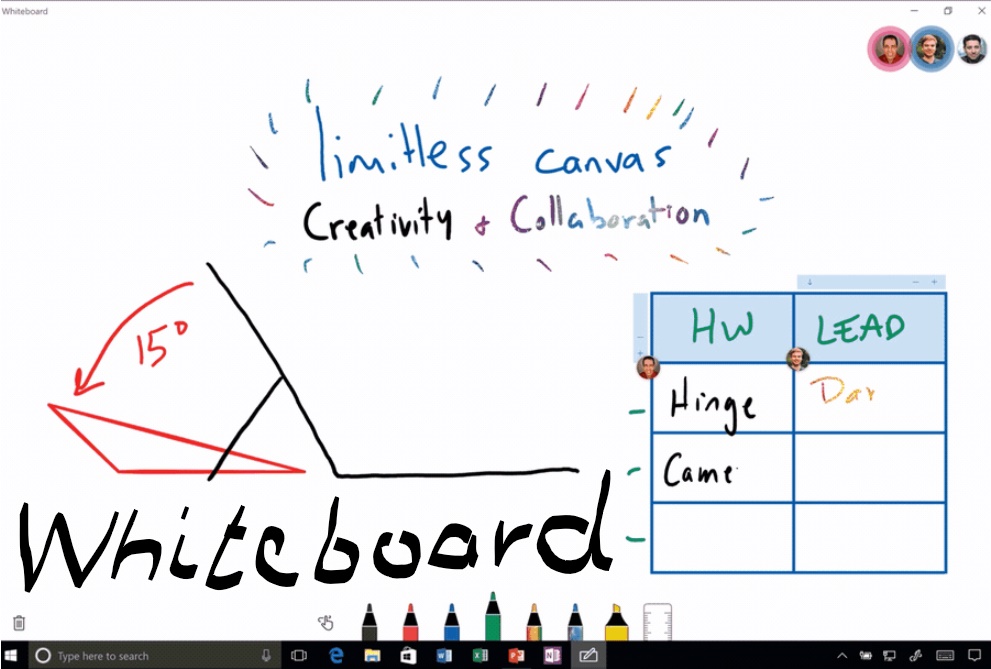 Whiteboard
limitless canvas
Creativity & Collaboration
15°
HW LEAD
Hinge Dar
Came
Whiteboard
Type here to search